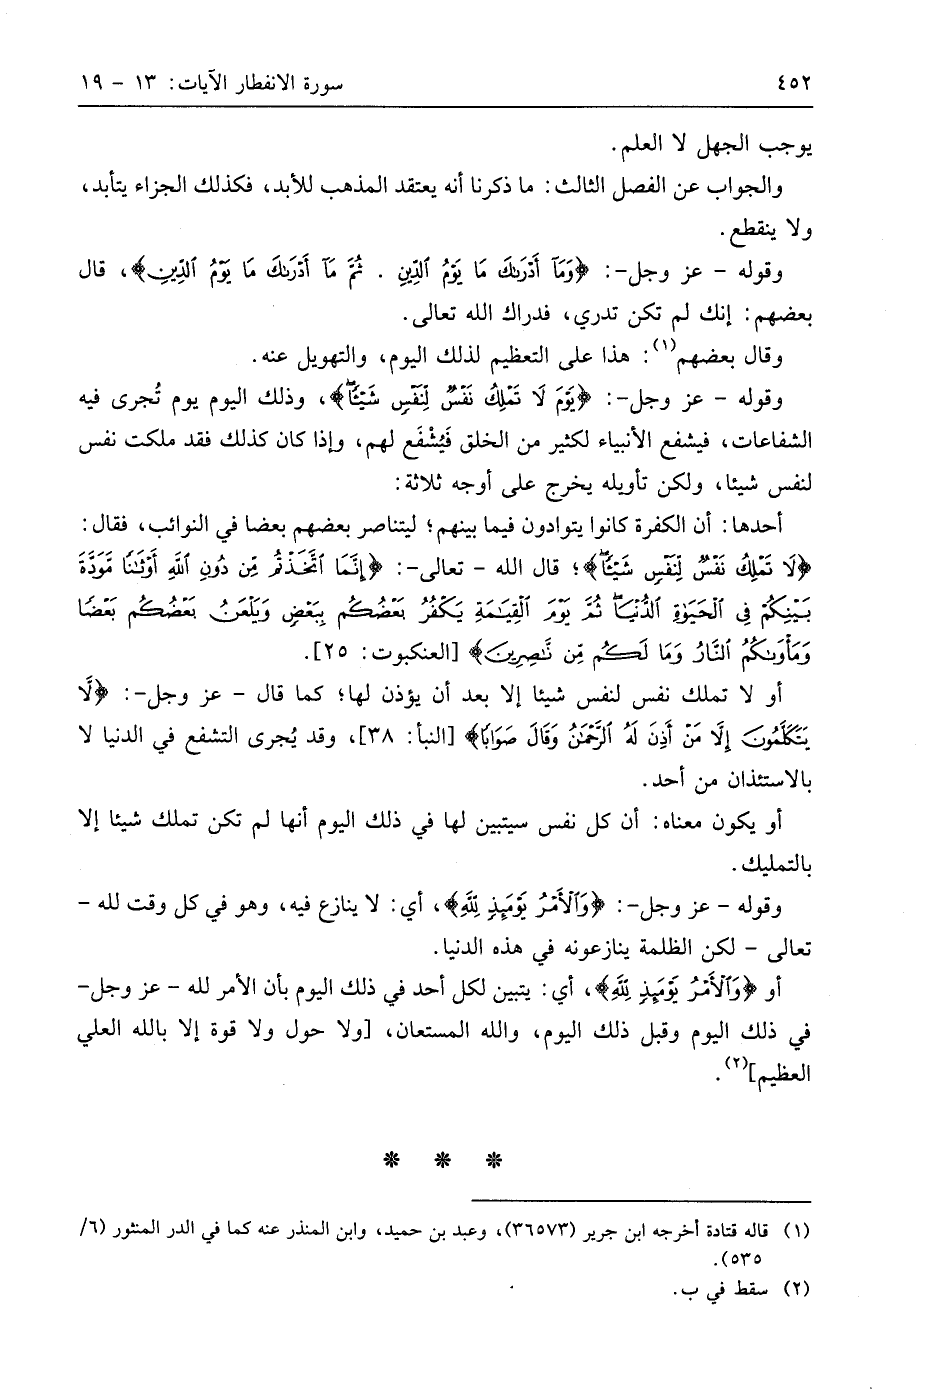 ٤٥٢ سورة الانفطار الآيات: ١٣ - ١٩
يوجب الجهل لا العلم.
والجواب عن الفصل الثالث: ما ذكرنا أنه يعتقد المذهب للأبد، فكذلك الجزاء يتأبد،
ولا ينقطع.
وقوله - عز وجل-: ﴿وَمَآ أَدْرَىٰكَ مَا يَوْمُ ٱلدِّينِ . ثُمَّ مَآ أَدْرَىٰكَ مَا يَوْمُ ٱلدِّينِ﴾، قال
بعضهم: إنك لم تكن تدري، فدراك الله تعالى.
وقال بعضهم(١): هذا على التعظيم لذلك اليوم، والتهويل عنه.
وقوله - عز وجل-: ﴿يَوْمَ لَا تَمْلِكُ نَفْسٌ لِّنَفْسٍ شَيْـًٔاۖ﴾، وذلك اليوم يوم تُجرى فيه
الشفاعات، فيشفع الأنبياء لكثير من الخلق فَيُشْفَع لهم، وإذا كان كذلك فقد ملكت نفس
لنفس شيئا، ولكن تأويله يخرج على أوجه ثلاثة:
أحدها: أن الكفرة كانوا يتوادون فيما بينهم؛ ليتناصر بعضهم بعضا في النوائب، فقال:
﴿لَا تَمْلِكُ نَفْسٌ لِّنَفْسٍ شَيْـًٔاۖ﴾؛ قال الله - تعالى-: ﴿إِنَّمَا ٱتَّخَذْتُم مِّن دُونِ ٱللَّهِ أَوْثَٰنًا مَّوَدَّةَ
بَيْنِكُمْ فِى ٱلْحَيَوٰةِ ٱلدُّنْيَاۖ ثُمَّ يَوْمَ ٱلْقِيَٰمَةِ يَكْفُرُ بَعْضُكُم بِبَعْضٍ وَيَلْعَنُ بَعْضُكُم بَعْضًا
وَمَأْوَىٰكُمُ ٱلنَّارُ وَمَا لَكُم مِّن نَّٰصِرِينَ﴾ [العنكبوت: ٢٥].
أو لا تملك نفس لنفس شيئا إلا بعد أن يؤذن لها؛ كما قال - عز وجل-: ﴿لَّا
يَتَكَلَّمُونَ إِلَّا مَنْ أَذِنَ لَهُ ٱلرَّحْمَٰنُ وَقَالَ صَوَابًا﴾ [النبأ: ٣٨]، وقد يُجرى التشفع في الدنيا لا
بالاستئذان من أحد.
أو يكون معناه: أن كل نفس سيتبين لها في ذلك اليوم أنها لم تكن تملك شيئا إلا
بالتمليك.
وقوله - عز وجل-: ﴿وَٱلْأَمْرُ يَوْمَئِذٍ لِّلَّهِ﴾، أي: لا ينازع فيه، وهو في كل وقت لله -
تعالى - لكن الظلمة ينازعونه في هذه الدنيا.
أو ﴿وَٱلْأَمْرُ يَوْمَئِذٍ لِّلَّهِ﴾، أي: يتبين لكل أحد في ذلك اليوم بأن الأمر لله - عز وجل-
في ذلك اليوم وقبل ذلك اليوم، والله المستعان، [ولا حول ولا قوة إلا بالله العلي
العظيم](٢).
* * *
(١) قاله قتادة أخرجه ابن جرير (٣٦٥٧٣)، وعبد بن حميد، وابن المنذر عنه كما في الدر المنثور (٦/
٥٣٥).
(٢) سقط في ب.